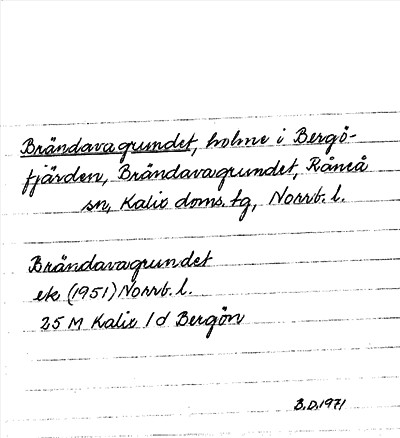 Brändavagrundet, holme i Bergö-
fjärden, Brändavagrundet, Råneå
sn, Kalix doms. tg, Norrb. l.
Brändavagrundet
ek (1951) Norrb. l.
25 M Kalix 1 d Bergön
B.D. 1971